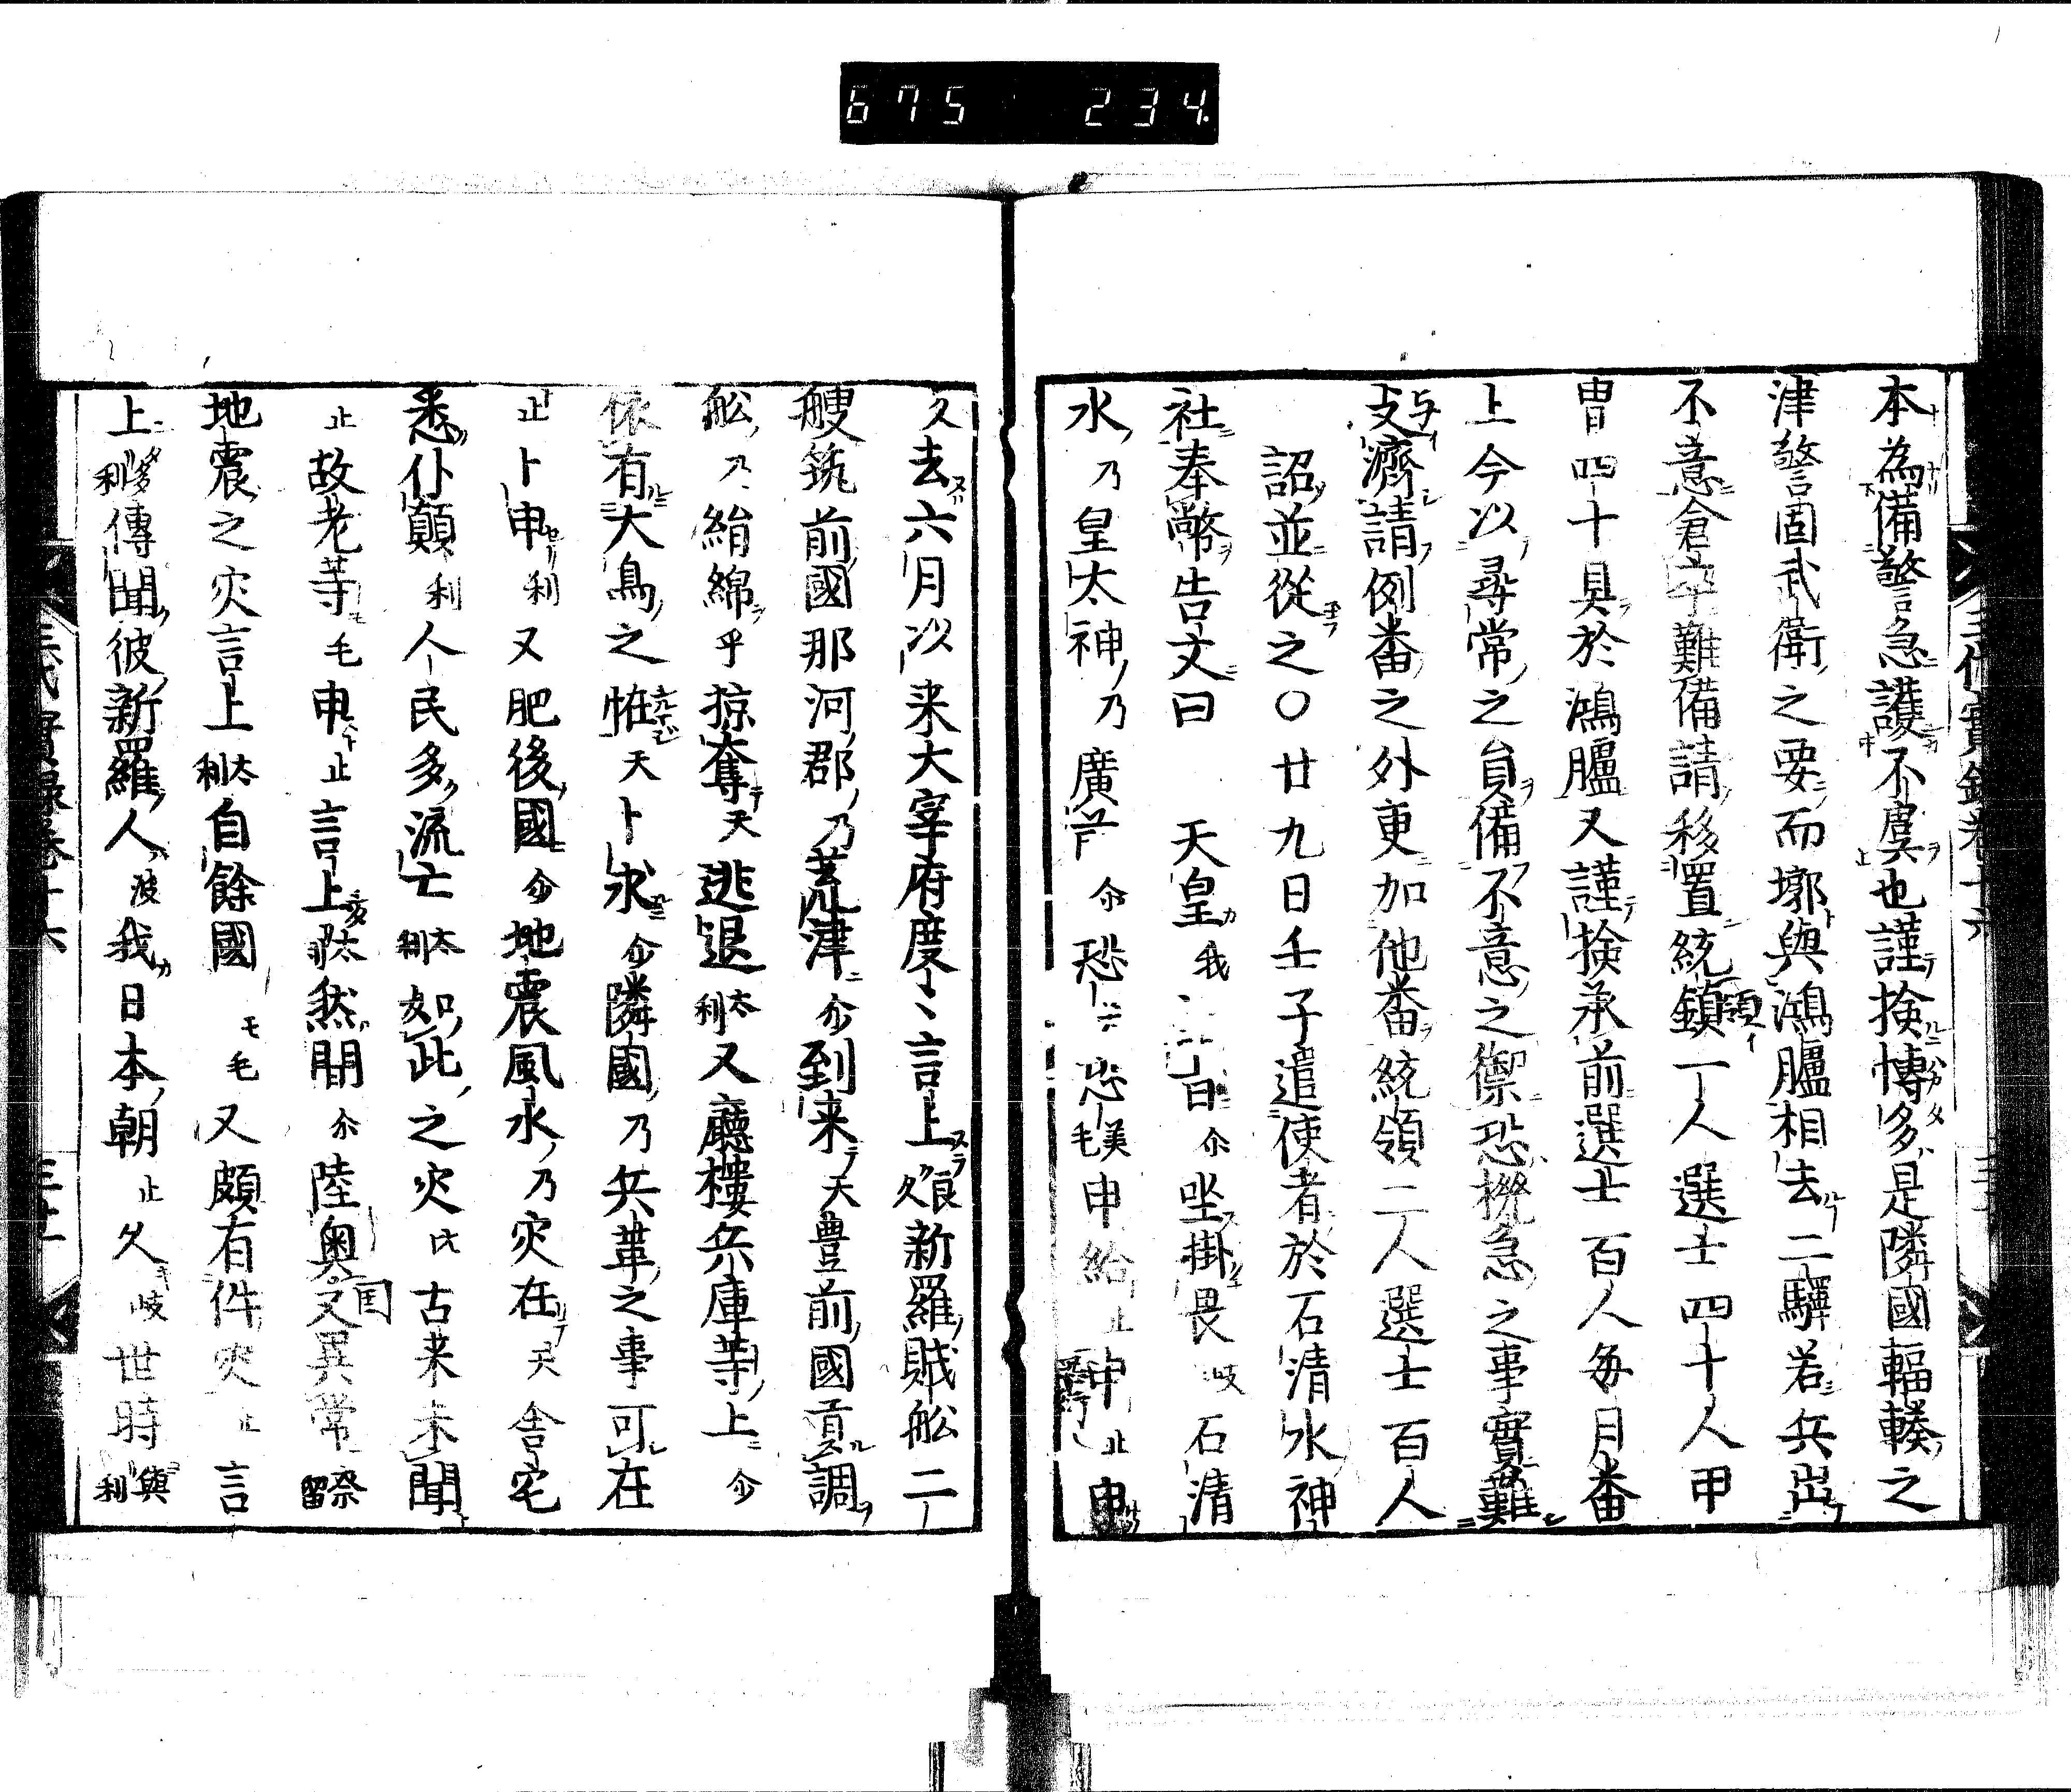 675 234.
本為備警急護不虞也謹検博多是隣國輻輳之
津警固武衛之要而墎與鴻臚相去二驛若兵出
不意倉卒難備請移置統鎮一人選士四十人甲
冑四十具於鴻臚又謹検承前選士百人毎月番
上今以尋常之員備不意之禦恐機急之事實難
支濟請例番之外更加他番統領二人選士百人
詔並從之〇廿九日壬子遣使者於石清水神
社奉幣告文曰 天皇我 尓坐掛畏岐石清
水乃皇太神乃廣前尓恐恐美毛申給止申止申
久去六月以来大宰府度〻言上良久新羅賊舩二
艘筑前國那河郡乃荒津尓到来天豊前國貢調
舩乃絹綿乎掠奪天逃退太利又廳樓兵庫等上尓
依有大鳥之恠天卜求尓隣國乃兵革之事可在
止卜申利又肥後國尓地震風水乃灾在天舎宅
悉仆顛利人民多流亡太利如此之灾古来未聞
止故老等毛申止言上太利然間尓陸奥國又異常奈留
地震之灾言上太利自餘國毛又頗有件灾止言
上多利傳聞彼新羅人波我日本朝止久岐世時與利
三代實録巻十六